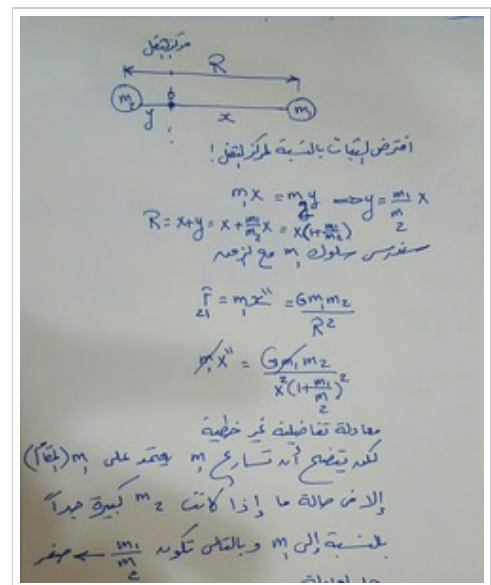 مركز الثقل
R
m₂ m₁
y x
افترض الثبات بالنسبة لمركز الثقل !
m₁x = m₂y ⟹ y = m₁/m₂ x
R = x+y = x + m₁/m₂ x = x(1+m₁/m₂)
سندرس سلوك m₁ مع الزمن
F₂₁ = m₁x'' = Gm₁m₂/R²
m₁x'' = Gm₁m₂/x²(1+m₁/m₂)²
معادلة تفاضلية غير خطية
لكن يتضح أن تسارع m₁ يعتمد على m₁ (أيضاً)
إلا في حالة ما إذا كانت m₂ كبيرة جداً
بالنسبة إلى m₁ وبالتالي تكون m₁/m₂ ← صفر